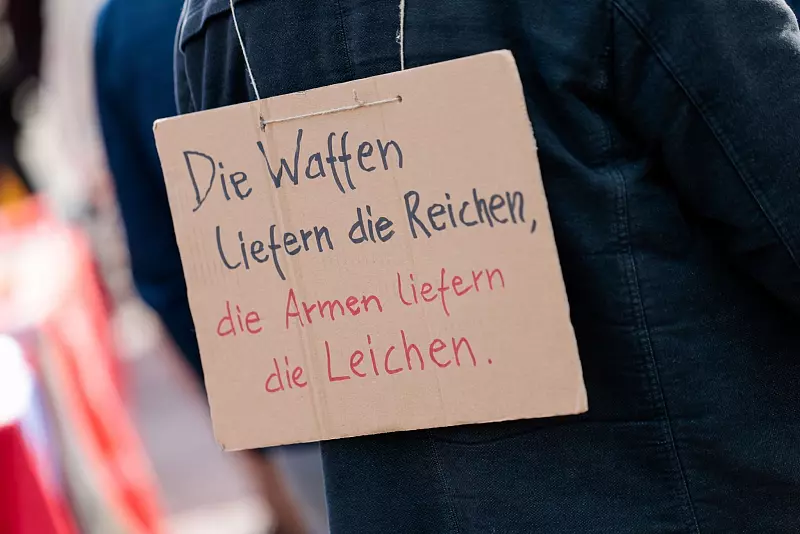 Die Waffen
liefern die Reichen,
die Armen liefern
die Leichen.